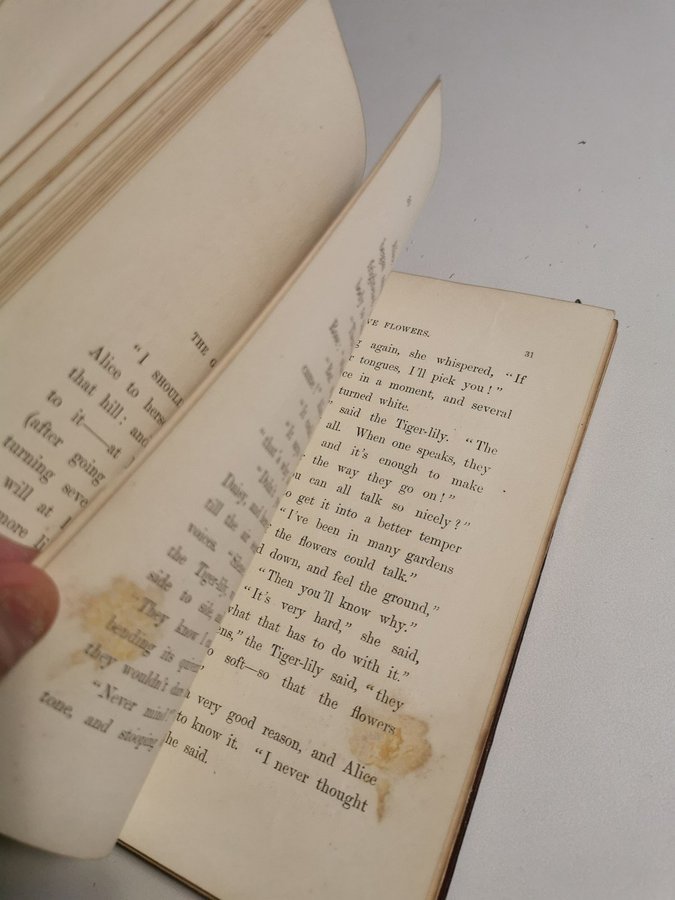 THE G
"I SHOULD
Alice to herse
that hill: and
to it—at l
(after going
turning seve
will at l
more li
Daisy, and
till the
voices. "S
the Tiger-lily,
side to
"They know I
bending its
they wouldn't
"Never mind
tone, and stooping
VE FLOWERS. 31
g again, she whispered, "If
r tongues, I'll pick you!"
ce in a moment, and several
turned white.
" said the Tiger-lily. "The
all. When one speaks, they
and it's enough to make
the way they go on!"
u can all talk so nicely?"
o get it into a better temper
"I've been in many gardens
the flowers could talk."
d down, and feel the ground,"
"Then you'll know why."
"It's very hard," she said,
what that has to do with it."
ens," the Tiger-lily said, "they
o soft—so that the flowers
a very good reason, and Alice
to know it. "I never thought
he said.